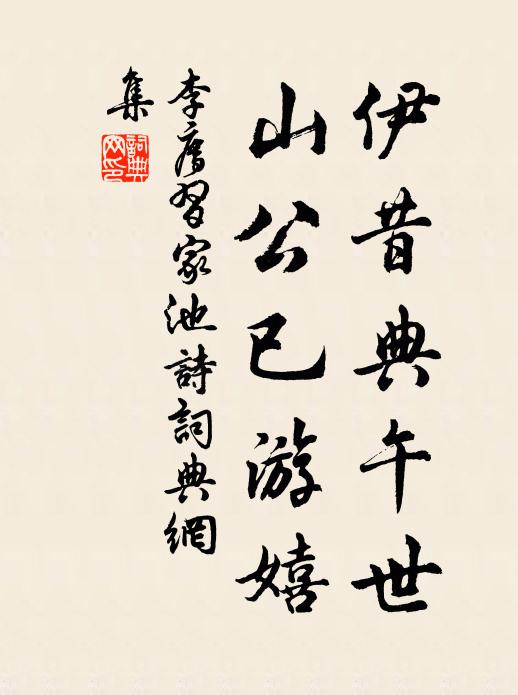 伊昔典午世
山公已游嬉
李廌習家池詩詞典網
集
詞典
網印